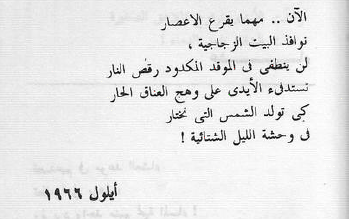 الآن .. مهما يقرع الاعصار
نوافذ البيت الزجاجية ،
لن ينطفى فى الموقد المكدود رقص النار
تستدفىء الأيدى على وهج العناق الحار
كى تولد الشمس التى نختار
فى وحشة الليل الشتائية !
أيلول ١٩٦٦